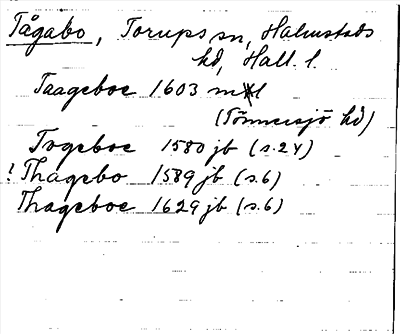 Tågabo, Torups sn, Halmstads
hd, Hall. l.
Taageboe 1603 mtl
(Tönnersjö hd)
Togeboe 1580 jb (s.24)
! Thagebo 1589 jb (s.6)
Thageboe 1629 jb (s.6)